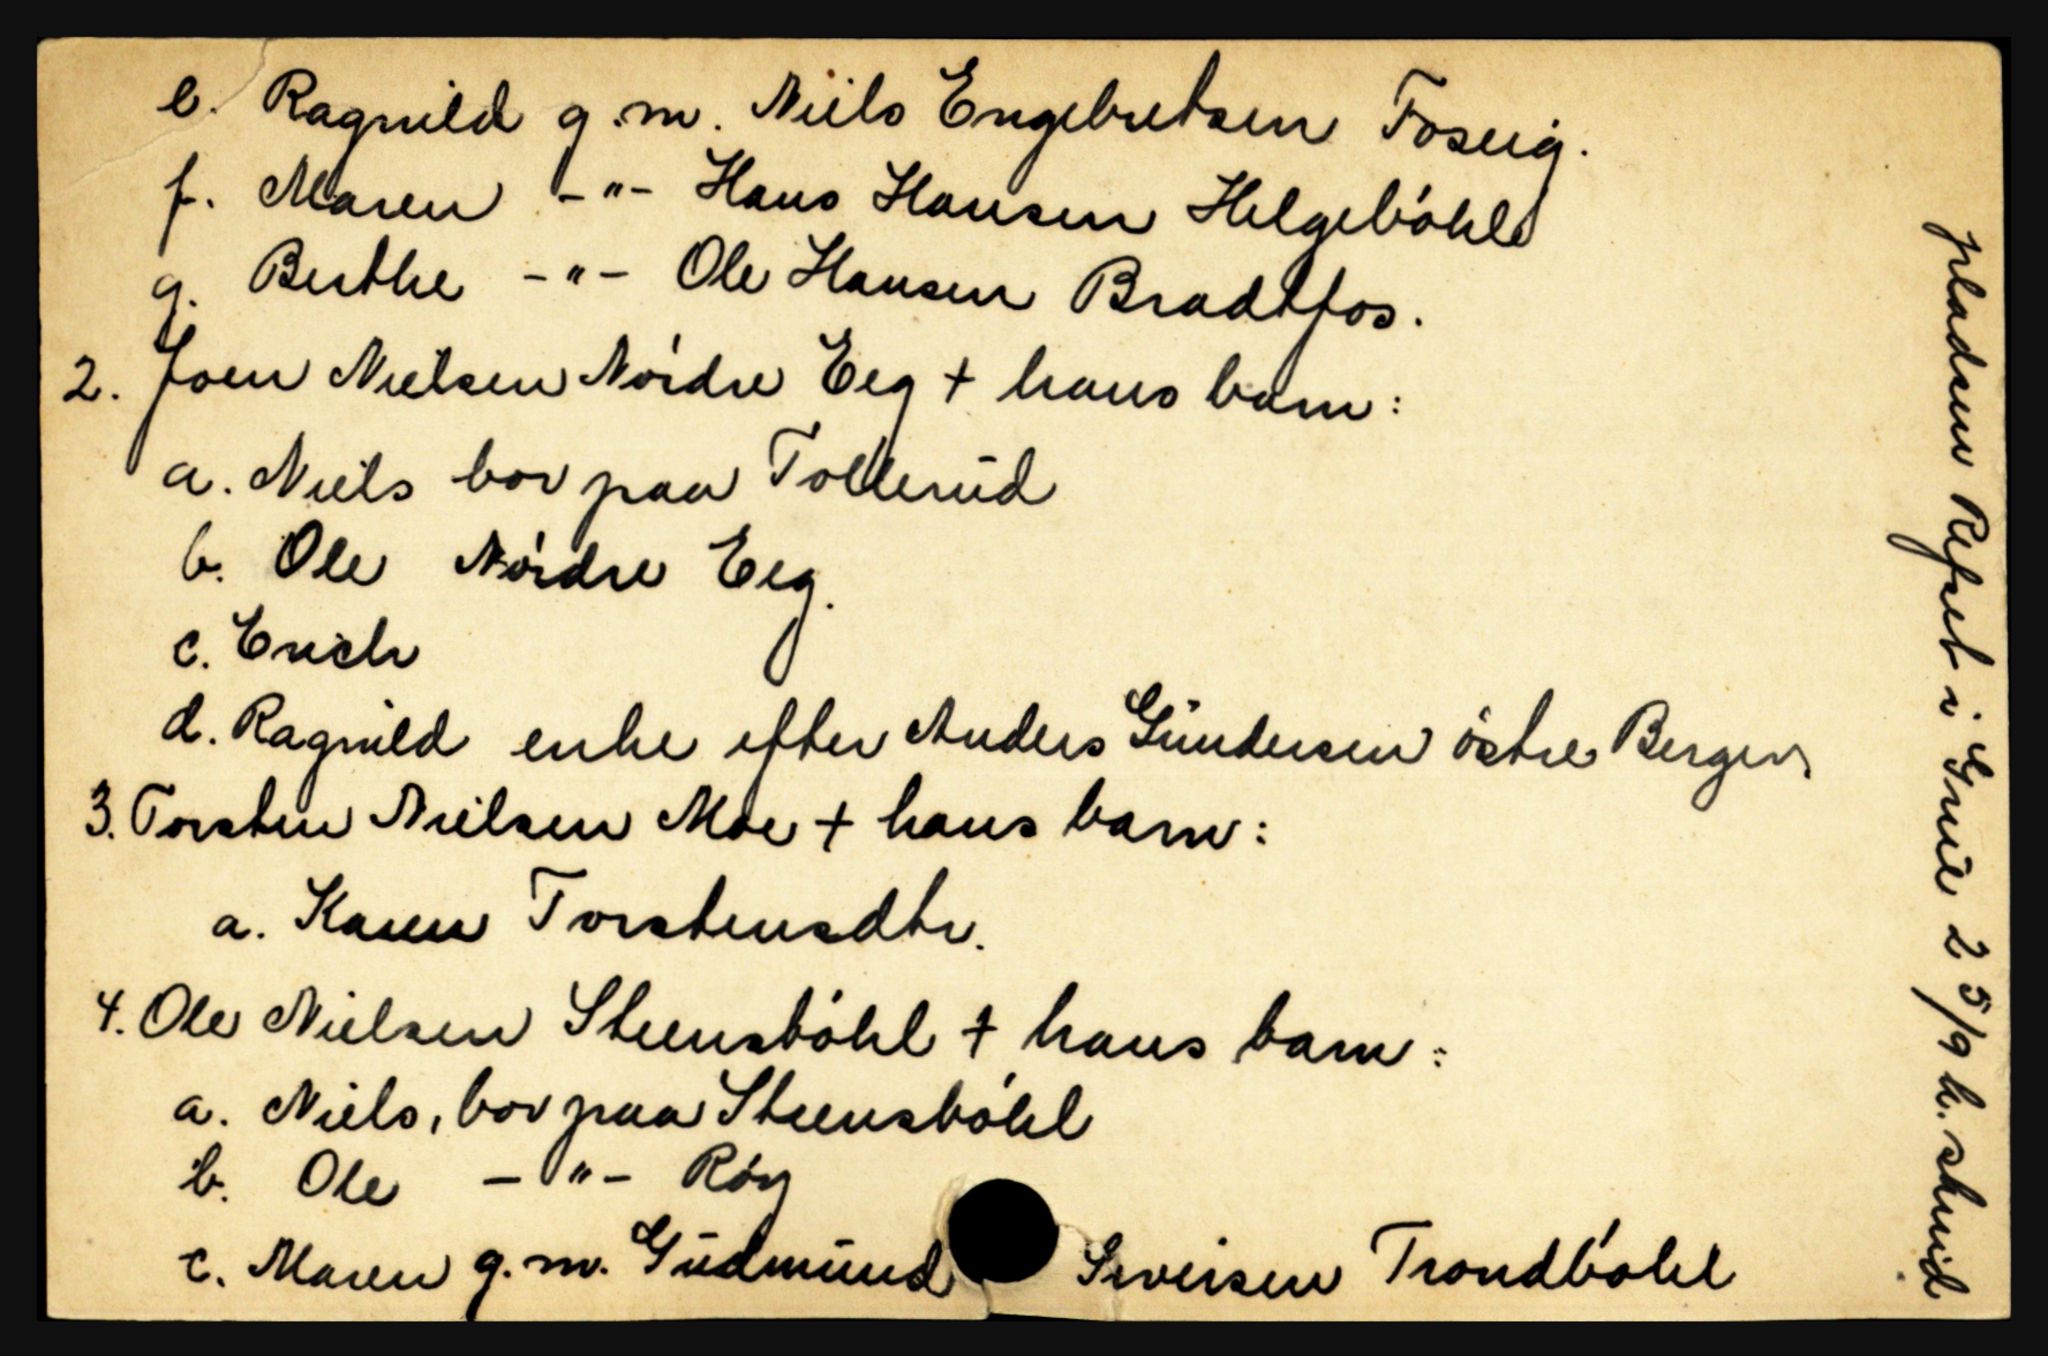 e. Ragnild g.m. Niels Engebretsen Foseig.
f. Maren -"- Hans Hansen Helgebøhle
g. Berthe -"- Ole Hansen Bradtfos.
2. Joen Nielsen Nordre Eeg + hans barn:
a. Niels bor paa Tollerud
b. Ole Nordre Eeg.
c. Erich
d. Ragnild enke efter Anders Gundersen østre Bergen
3. Torsten Nielsen Moe + hans barn:
a. Karen Torstensdtr.
4. Ole Nielsen Steensbøhl + hans barn:
a. Niels, bor paa Steensbøhl
b. Ole -"- Røy
c. Maren g.m. Gudmund Siversen Trondbøhl
pladsen Refset i Grue 25/9 h. skuid